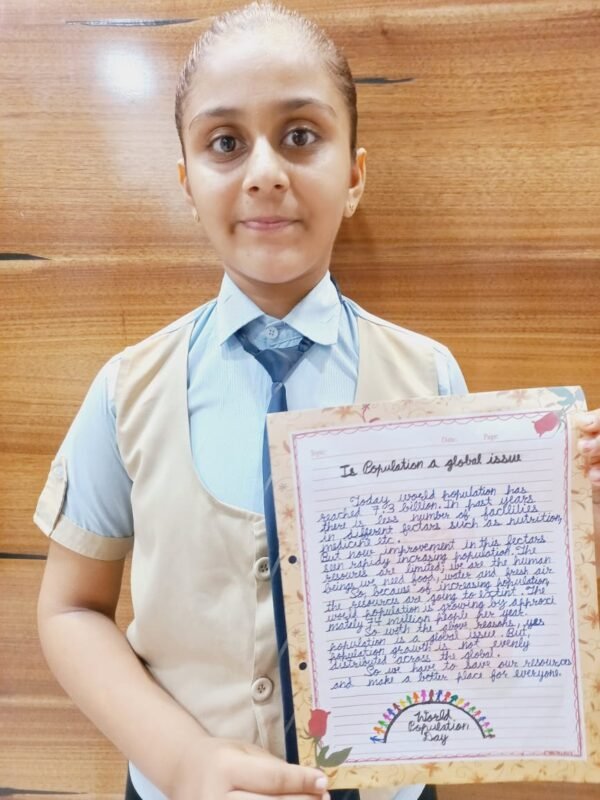 Topic: Date: Page:
Is Population a global issue
Today world population has
reached 7.3 billion. In past years
there is less number of facilities
in different sectors such as nutrition,
medicine etc.
But now improvement in this sectors
seen rapidy incrasing population. The
resoures are limited, we are the human
beings, we need food, water and fresh air.
So, because of increasing population,
the resources are going to extint. The
world population is growing by approxi
mately 74 million people her year.
So with the above reasons, yes
population is a global issue. But,
population growth is not evenly
distributed across the global.
So we have to save our resources
and make a better place for everyone.
World
Population
Day